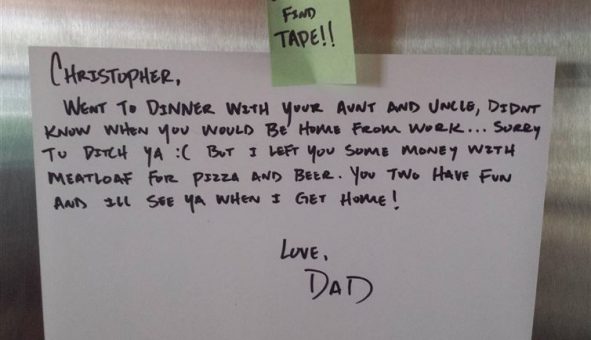 FIND
TAPE!!
CHRISTOPHER,
WENT TO DINNER WITH YOUR AUNT AND UNCLE, DIDNT
KNOW WHEN YOU WOULD BE HOME FROM WORK... SORRY
TO DITCH YA :( BUT I LEFT YOU SOME MONEY WITH
MEATLOAF FOR PIZZA AND BEER. YOU TWO HAVE FUN
AND ILL SEE YA WHEN I GET HOME!
LOVE,
DAD